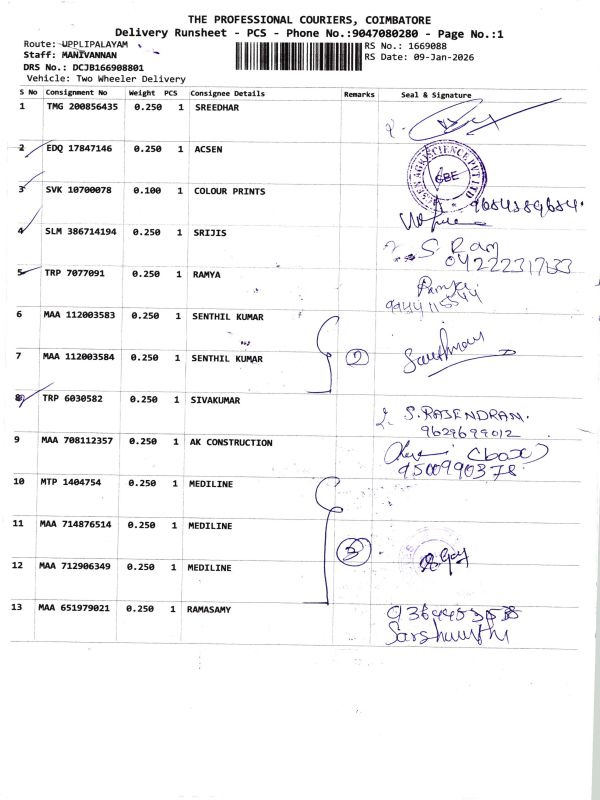 THE PROFESSIONAL COURIERS, COIMBATORE
Delivery Runsheet - PCS - Phone No.:9047080280 - Page No.:1
Route: UPPLIPALAYAM
RS No.: 1669088
Staff: MANIVANNAN
RS Date: 09-Jan-2026
DRS No.: DCJB166908801
Vehicle: Two Wheeler Delivery
S No Consignment No Weight PCS Consignee Details Remarks Seal & Signature
1 TMG 200856435 0.250 1 SREEDHAR
2 EDQ 17847146 0.250 1 ACSEN
CBE
3 SVK 10700078 0.100 1 COLOUR PRINTS
4 SLM 386714194 0.250 1 SRIJIS
S. Ram
04222231733
5 TRP 7077091 0.250 1 RAMYA
Ramya
9944115544
6 MAA 112003583 0.250 1 SENTHIL KUMAR
7 MAA 112003584 0.250 1 SENTHIL KUMAR 2
8 TRP 6030582 0.250 1 SIVAKUMAR
S. RAJENDRAN.
9629699012
9 MAA 708112357 0.250 1 AK CONSTRUCTION
(box)
9500990378
10 MTP 1404754 0.250 1 MEDILINE
11 MAA 714876514 0.250 1 MEDILINE
3
12 MAA 712906349 0.250 1 MEDILINE
13 MAA 651979021 0.250 1 RAMASAMY